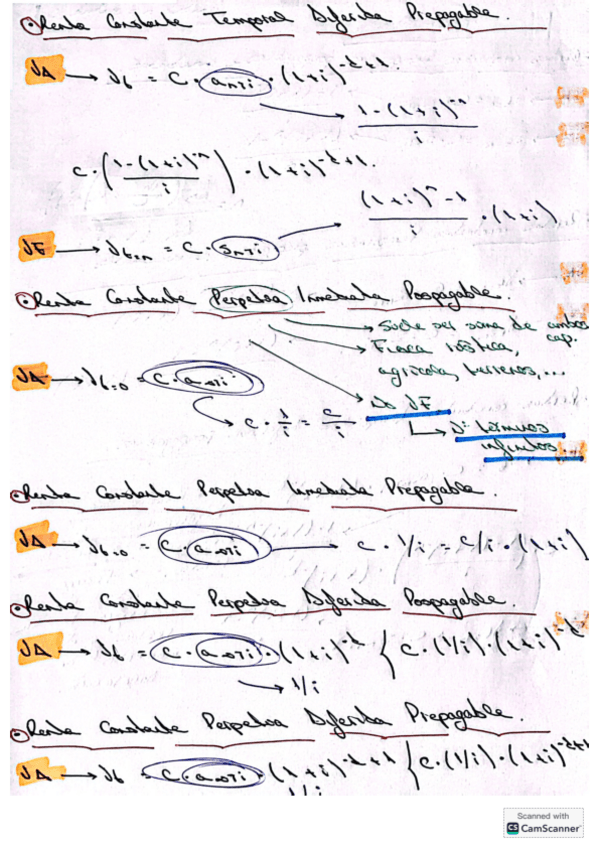 Renta Constante Temporal Diferida Prepagable.
VA → Vt = C · an¬i · (1+i)^-t+1.
1-(1+i)^-n / i
C · (1-(1+i)^-n / i) · (1+i)^-t+1.
(1+i)^n - 1 / i · (1+i)
VF → Vt=n = C · Sn¬i
Renta Constante Perpetua Inmediata Pospagable.
→ Suele ser suma de ambos cap.
→ Finca rústica,
agrícola, terrenos,...
VA → Vt=0 = C · a∞¬i
→ No VF
→ C · 1/i = C/i
→ Nº términos
infinitos...
Renta Constante Perpetua Inmediata Prepagable.
VA → Vt=0 = C · a∞¬i → C · 1/i = C/i · (1+i)
Renta Constante Perpetua Diferida Pospagable.
VA → Vt = C · a∞¬i · (1+i)^-t { C · (1/i) · (1+i)^-t
→ 1/i
Renta Constante Perpetua Diferida Prepagable.
VA → Vt = C · a∞¬i · (1+i)^-t+1 { C · (1/i) · (1+i)^-t+1
1/i
Scanned with
CS CamScanner